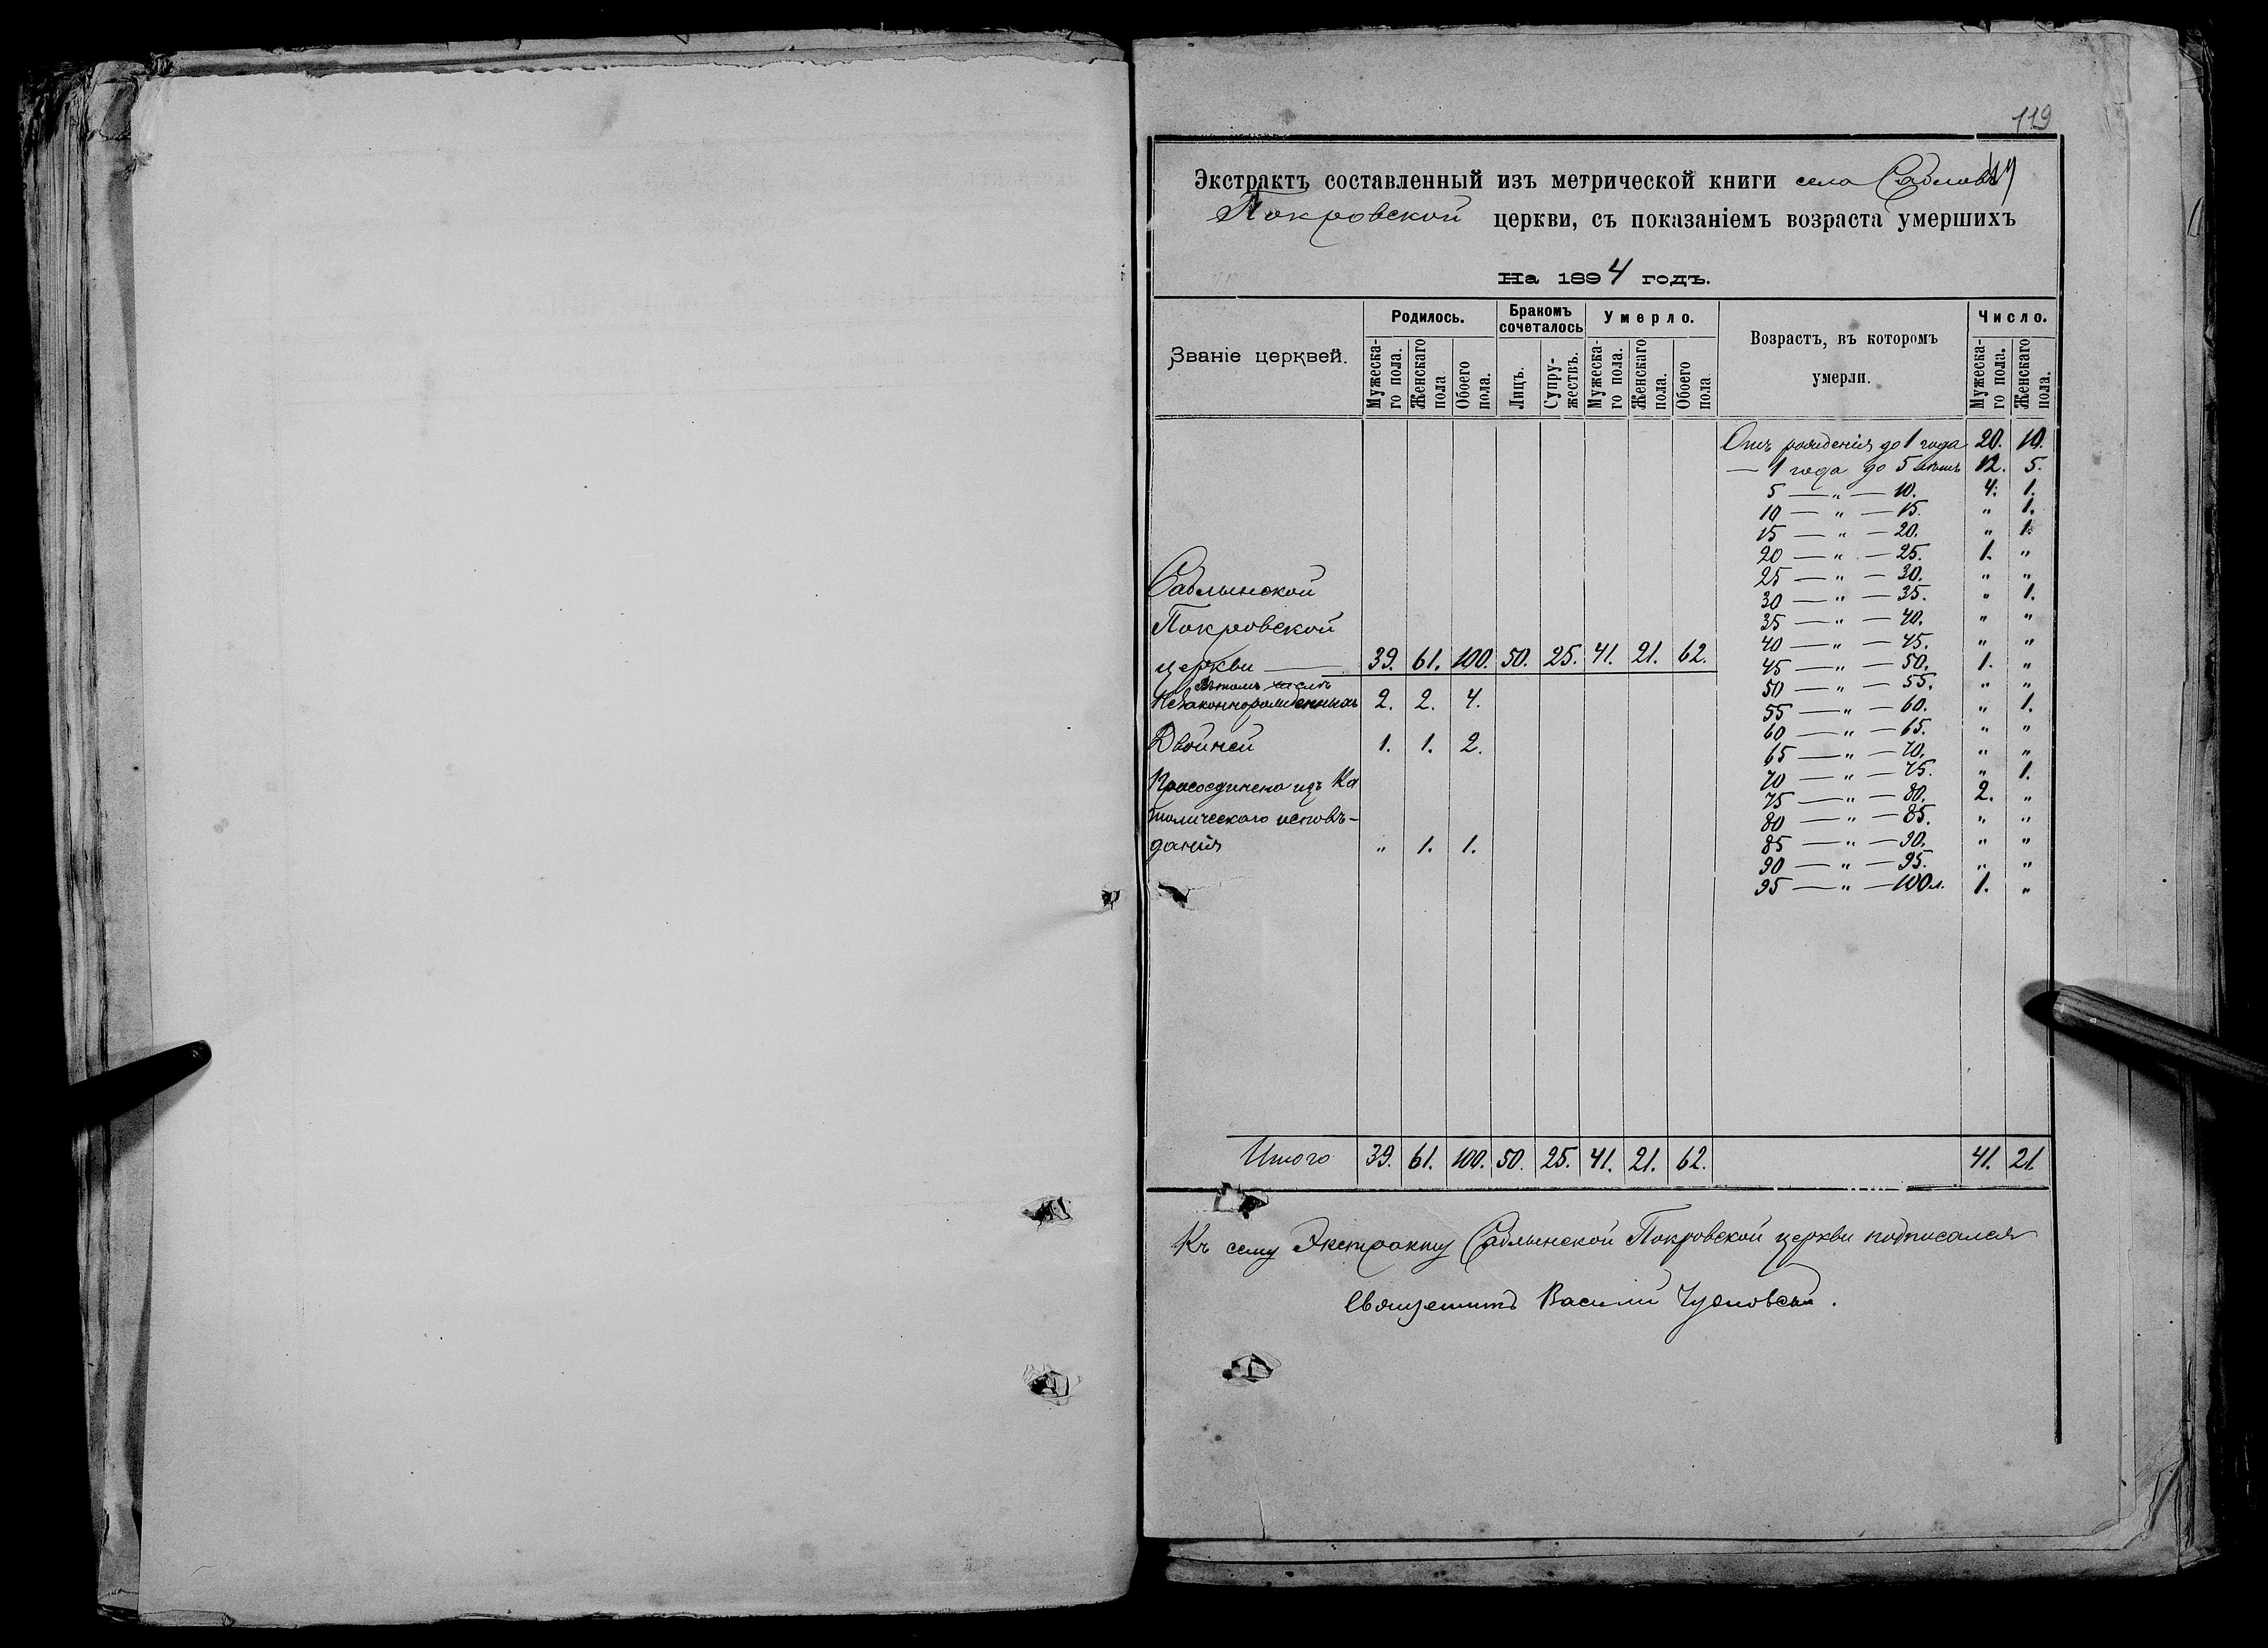 119
Экстрактъ составленный изъ метрической книги села
Покровской церкви, съ показаніемъ возраста умершихъ
На 1894 годъ.
Званіе церквей. Родилось. Бракомъ сочеталось Умерло. Возрастъ, въ которомъ умерли. Число.
Мужеска-го пола. Женскаго пола Обоего пола. Лицъ. Супру-жествъ. Мужеска-го пола. Женскаго пола. Обоего пола Мужеска-го пола. Женскаго пола.
Отъ рожденія до 1 года 20. 10.
— 1 года до 5 лѣтъ 12. 5.
5 — „ — 10. 4. 1.
10 — „ — 15. „ 1.
15 — „ — 20. „ 1.
20 — „ — 25. 1. „
25 — „ — 30. „ „
30 — „ — 35. „ 1.
35 — „ — 40. „ „
40 — „ — 45. „ „
45 — „ — 50. 1. „
50 — „ — 55. „ „
55 — „ — 60. „ 1.
60 — „ — 65. „ „
65 — „ — 70. „ „
70 — „ — 75. „ 1.
75 — „ — 80. 2. „
80 — „ — 85. „ „
85 — „ — 90. „ „
90 — „ — 95. „ „
95 — „ — 100 л. 1. „
Саблынской
Покровской
церкви — 39. 61. 100. 50. 25. 41. 21. 62.
Въ томъ числѣ
Незаконнорожденныхъ 2. 2. 4.
Двойней 1. 1. 2.
Присоединено изъ Ка
толическаго исповѣ-
данія „ 1. 1.
Итого 39. 61. 100. 50. 25. 41. 21. 62. 41. 21.
Къ сему Экстракту Саблынской Покровской церкви подписался
Священникъ Василій